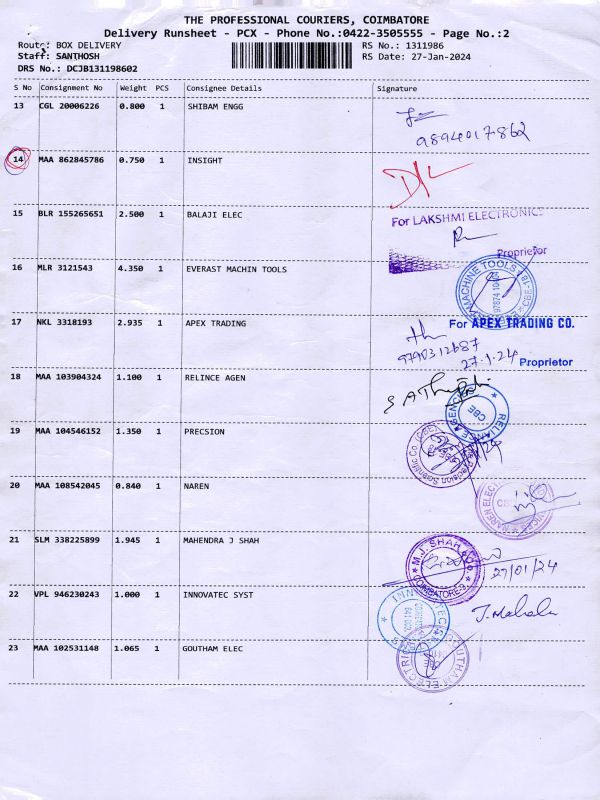 THE PROFESSIONAL COURIERS, COIMBATORE
Delivery Runsheet - PCX - Phone No.:0422-3505555 - Page No.:2
Route: BOX DELIVERY RS No.: 1311986
Staff: SANTHOSH RS Date: 27-Jan-2024
DRS No.: DCJB131198602
S No Consignment No Weight PCS Consignee Details Signature
13 CGL 20006226 0.800 1 SHIBAM ENGG
9894017862
14 MAA 862845786 0.750 1 INSIGHT
15 BLR 155265651 2.500 1 BALAJI ELEC For LAKSHMI ELECTRONICS
Proprietor
16 MLR 3121543 4.350 1 EVERAST MACHIN TOOLS
MACHINE TOOLS
17 NKL 3318193 2.935 1 APEX TRADING For APEX TRADING CO.
9790312687
27.1.24 Proprietor
18 MAA 103904324 1.100 1 RELINCE AGEN
RELIANCE AGENCIES CBE
19 MAA 104546152 1.350 1 PRECSION
20 MAA 108542045 0.840 1 NAREN
NAREN ELECT
21 SLM 338225899 1.945 1 MAHENDRA J SHAH
M.J. SHAH & CO. COIMBATORE-9
27/01/24
22 VPL 946230243 1.000 1 INNOVATEC SYST
J. Mahala
23 MAA 102531148 1.065 1 GOUTHAM ELEC
CBE